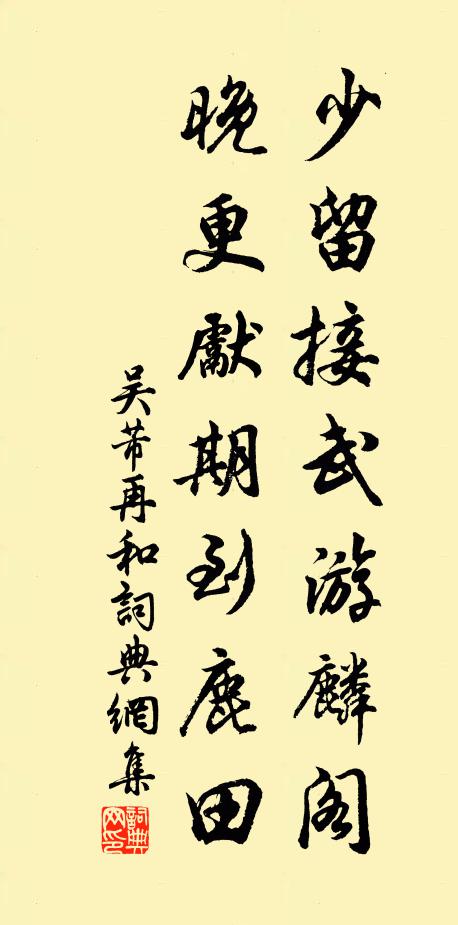 少留接武游麟阁
晚更献期到鹿田
吴芾再和詞典網集
詞典网印